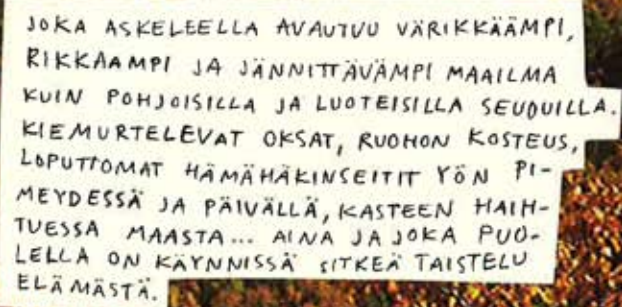 JOKA ASKELEELLA AVAUTUU VÄRIKKÄÄMPI,
RIKKAAMPI JA JÄNNITTÄVÄMPI MAAILMA
KUIN POHJOISILLA JA LUOTEISILLA SEUDUILLA.
KIEMURTELEVAT OKSAT, RUOHON KOSTEUS,
LOPUTTOMAT HÄMÄHÄKINSEITIT YÖN PI-
MEYDESSÄ JA PÄIVÄLLÄ, KASTEEN HAIH-
TUESSA MAASTA... AINA JA JOKA PUO-
LELLA ON KÄYNNISSÄ SITKEÄ TAISTELU
ELÄMÄSTÄ.